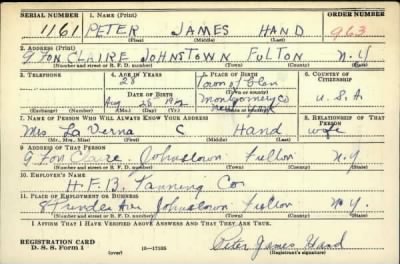 SERIAL NUMBER 1. NAME (Print) ORDER NUMBER
1161 PETER JAMES HAND 963
(First) (Middle) (Last)
2. ADDRESS (Print)
9 FON CLAIRE JOHNSTOWN FULTON N.Y
(Number and street or R. F. D. number) (Town) (County) (State)
3. TELEPHONE 4. AGE IN YEARS 5. PLACE OF BIRTH 6. COUNTRY OF CITIZENSHIP
28 Town of Glen
DATE OF BIRTH Montgomery Co
Aug 28 U.S.A
(Exchange) (Number) (Mo.) (Day) (Yr.) (State or country)
7. NAME OF PERSON WHO WILL ALWAYS KNOW YOUR ADDRESS 8. RELATIONSHIP OF THAT PERSON
Mrs La Verna C Hand wife
(Mr., Mrs., Miss) (First) (Middle) (Last)
9. ADDRESS OF THAT PERSON
9 Fon Claire Johnstown Fulton N.Y
(Number and street or R. F. D. number) (Town) (County) (State)
10. EMPLOYER'S NAME
H.F.B. Tanning Co.
11. PLACE OF EMPLOYMENT OR BUSINESS
Ave Johnstown Fulton N.Y.
(Number and street or R. F. D. number) (Town) (County) (State)
I AFFIRM THAT I HAVE VERIFIED ABOVE ANSWERS AND THAT THEY ARE TRUE.
REGISTRATION CARD
D. S. S. Form 1 (over) 16—17105 Peter James Hand
(Registrant's signature)